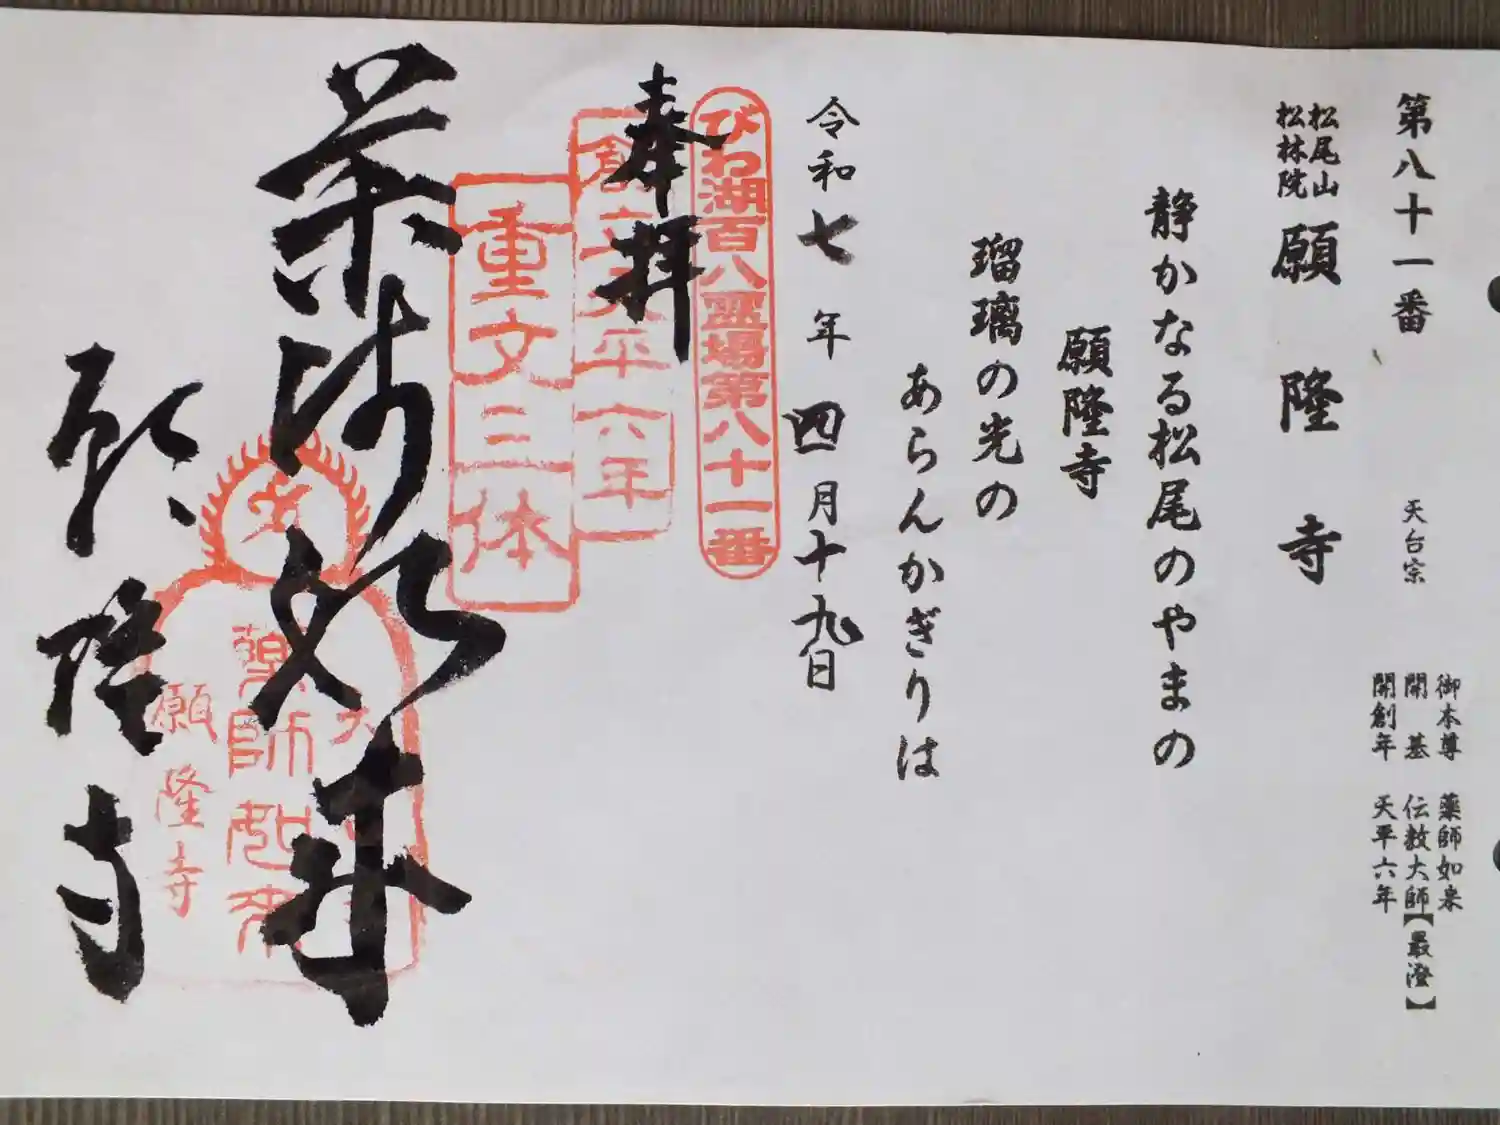 第八十一番
天台宗
御本尊 薬師如来
開 基 伝教大師【最澄】
開創年 天平六年
松尾山
松林院
願隆寺
静かなる松尾のやまの
願隆寺
瑠璃の光の
あらんかぎりは
令和七年四月十九日
びわ湖百八霊場第八十一番
奉拝
創立天平六年
重文三体
薬師如来
薬師如来
願隆寺
願隆寺